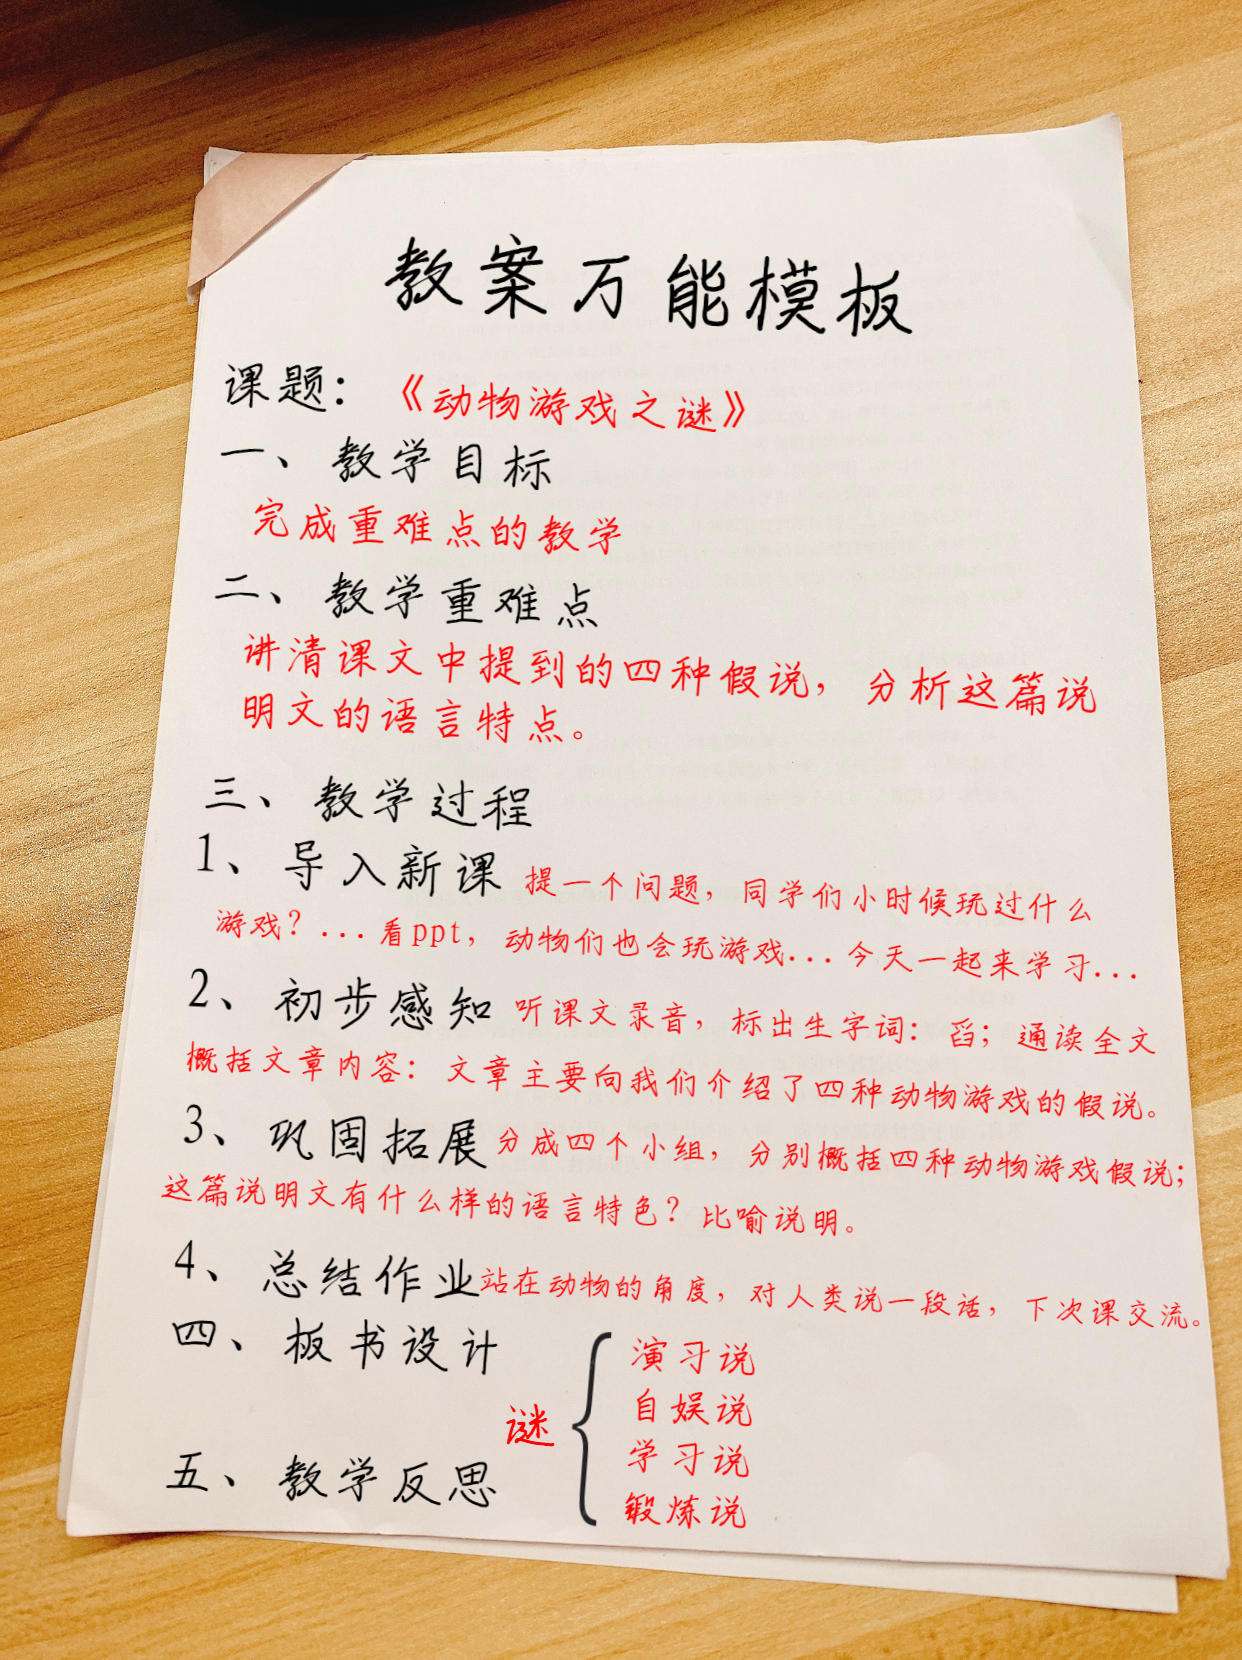 教案万能模板
课题：《动物游戏之谜》
一、教学目标
完成重难点的教学
二、教学重难点
讲清课文中提到的四种假说，分析这篇说
明文的语言特点。
三、教学过程
1、导入新课 提一个问题，同学们小时候玩过什么
游戏？...看ppt，动物们也会玩游戏...今天一起来学习...
2、初步感知 听课文录音，标出生字词：舀；通读全文
概括文章内容：文章主要向我们介绍了四种动物游戏的假说。
3、巩固拓展 分成四个小组，分别概括四种动物游戏假说；
这篇说明文有什么样的语言特色？比喻说明。
4、总结作业 站在动物的角度，对人类说一段话，下次课交流。
四、板书设计
谜
演习说
自娱说
学习说
锻炼说
五、教学反思